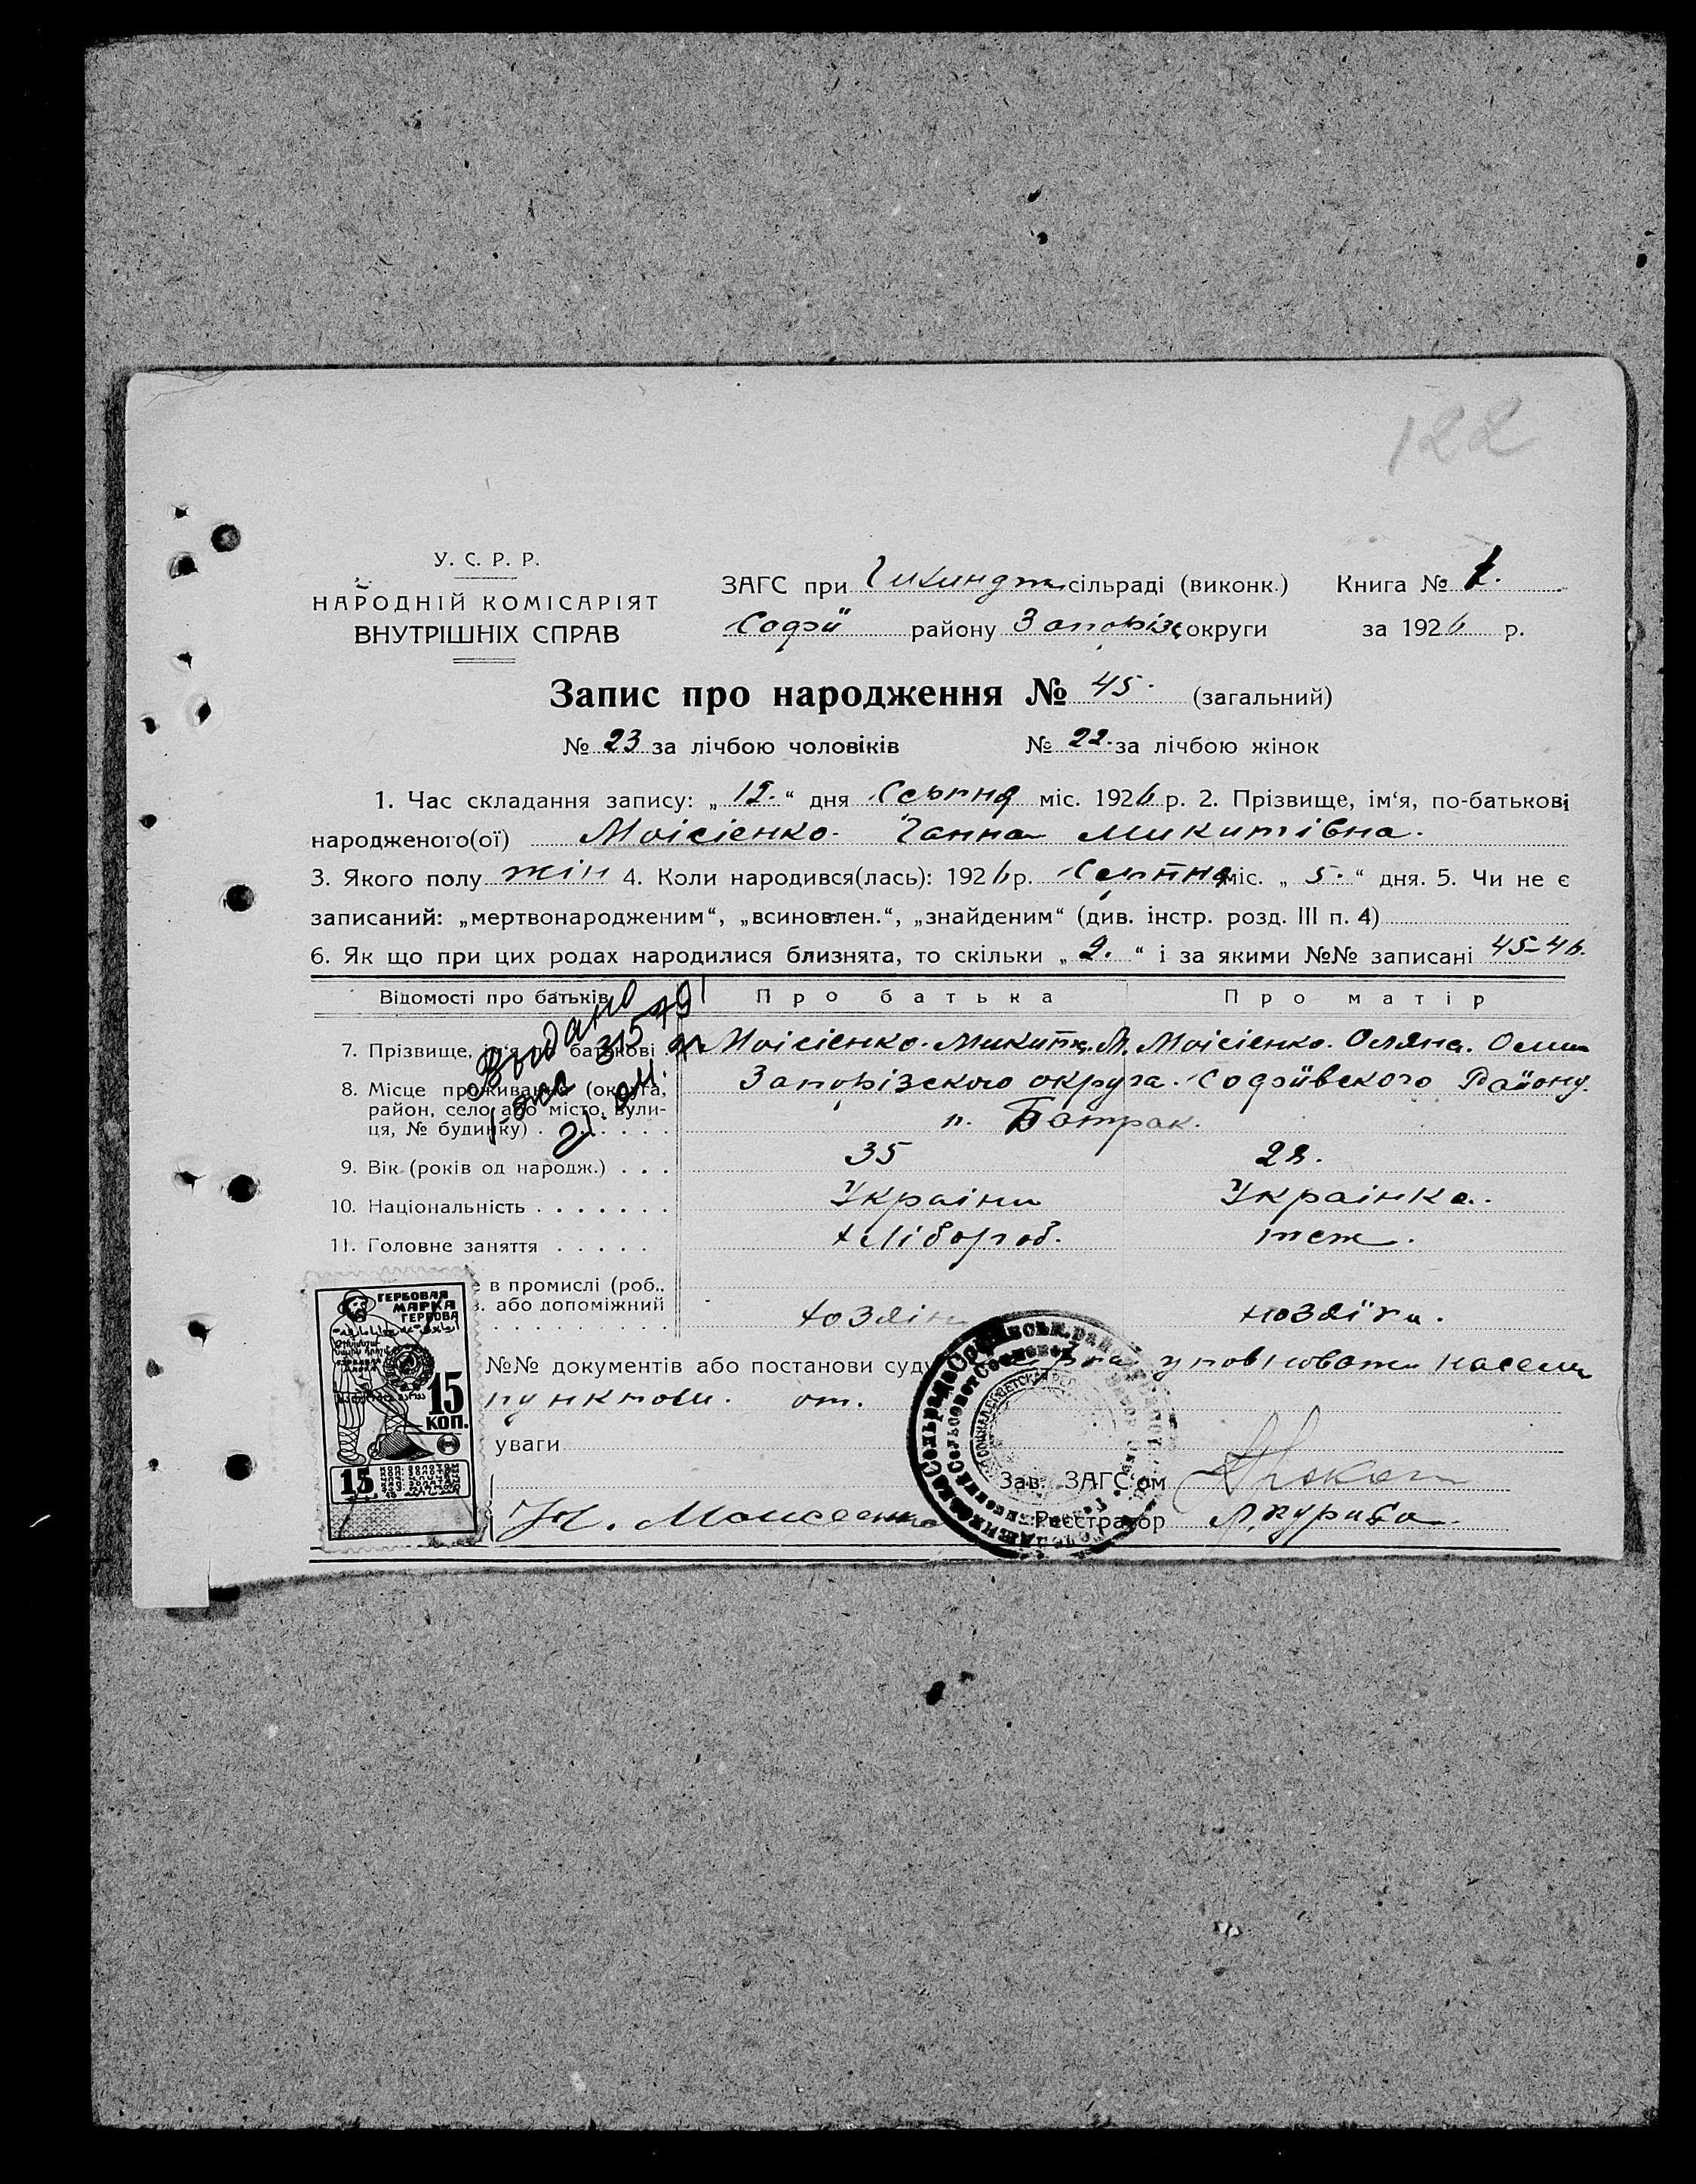 122
У. С. Р. Р.
НАРОДНІЙ КОМІСАРІЯТ
ВНУТРІШНІХ СПРАВ
ЗАГС при сільраді (виконк.) Книга №
Софії району Запоріз округи за 1926 р.
Запис про народження № 45. (загальний)
№ 23 за лічбою чоловіків № 22. за лічбою жінок
1. Час складання запису: „ 12. “ дня Серпня міс. 1926 р. 2. Прізвище, ім‘я, по-батькові
народженого(ої) Моісієнко Ганна Микитівна.
3. Якого полу жін 4. Коли народився(лась): 1926 р. Серпня міс. „ 5. “ дня. 5. Чи не є
записаний: „мертвонародженим“, „всиновлен.“, „знайденим“ (див. інстр. розд. III п. 4)
6. Як що при цих родах народилися близнята, то скільки „ 2. “ і за якими №№ записані 45-46.
Відомості про батьків Про батька Про матір
Видано
7. Прізвище, ім‘я по батькові Моісієнко. Микита. М. Моісієнко. Оляна.
8. Місце проживання (округа, Запорізского округа. Софіївского Району.
район, село або місто, вули-
ця, № будинку) п. Батрак.
9. Вік (років од народж.) 35 28.
10. Національність України Українка.
11. Головне заняття хлібороб. теж.
в промислі (роб.,
або допоміжний хозяін хозяїка.
№№ документів або постанови суду
пунктом. от.
уваги
Зав. ЗАГС‘ом
Н. Моисеенко Реєстратор
ГЕРБОВАЯ
МАРКА
ГЕРБОВА
15
КОП.
15